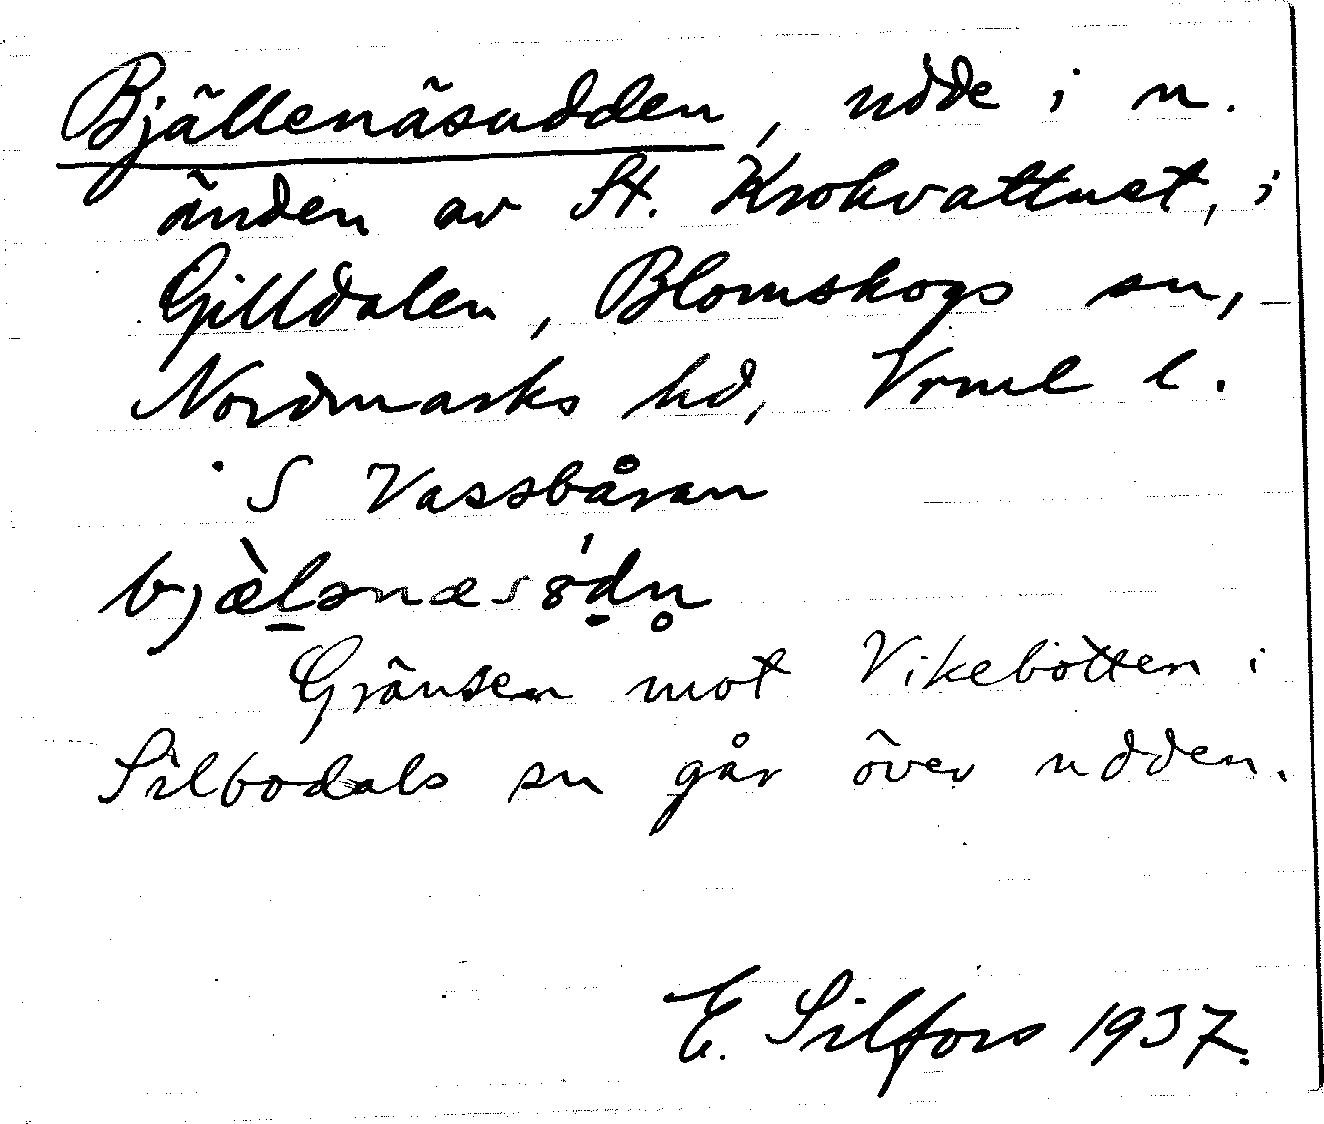 Bjällenäsudden, udde i n.
änden av St. Krokvattnet, i
Gilldalen, Blomskogs sn,
Nordmarks hd, Vrml l.
S Vassbåran
bjæ̀l̠ənæsꞩ́ḍn̥
Gränsen mot Vikebotten i
Silbodals sn går över udden.
E. Silfors 1937.